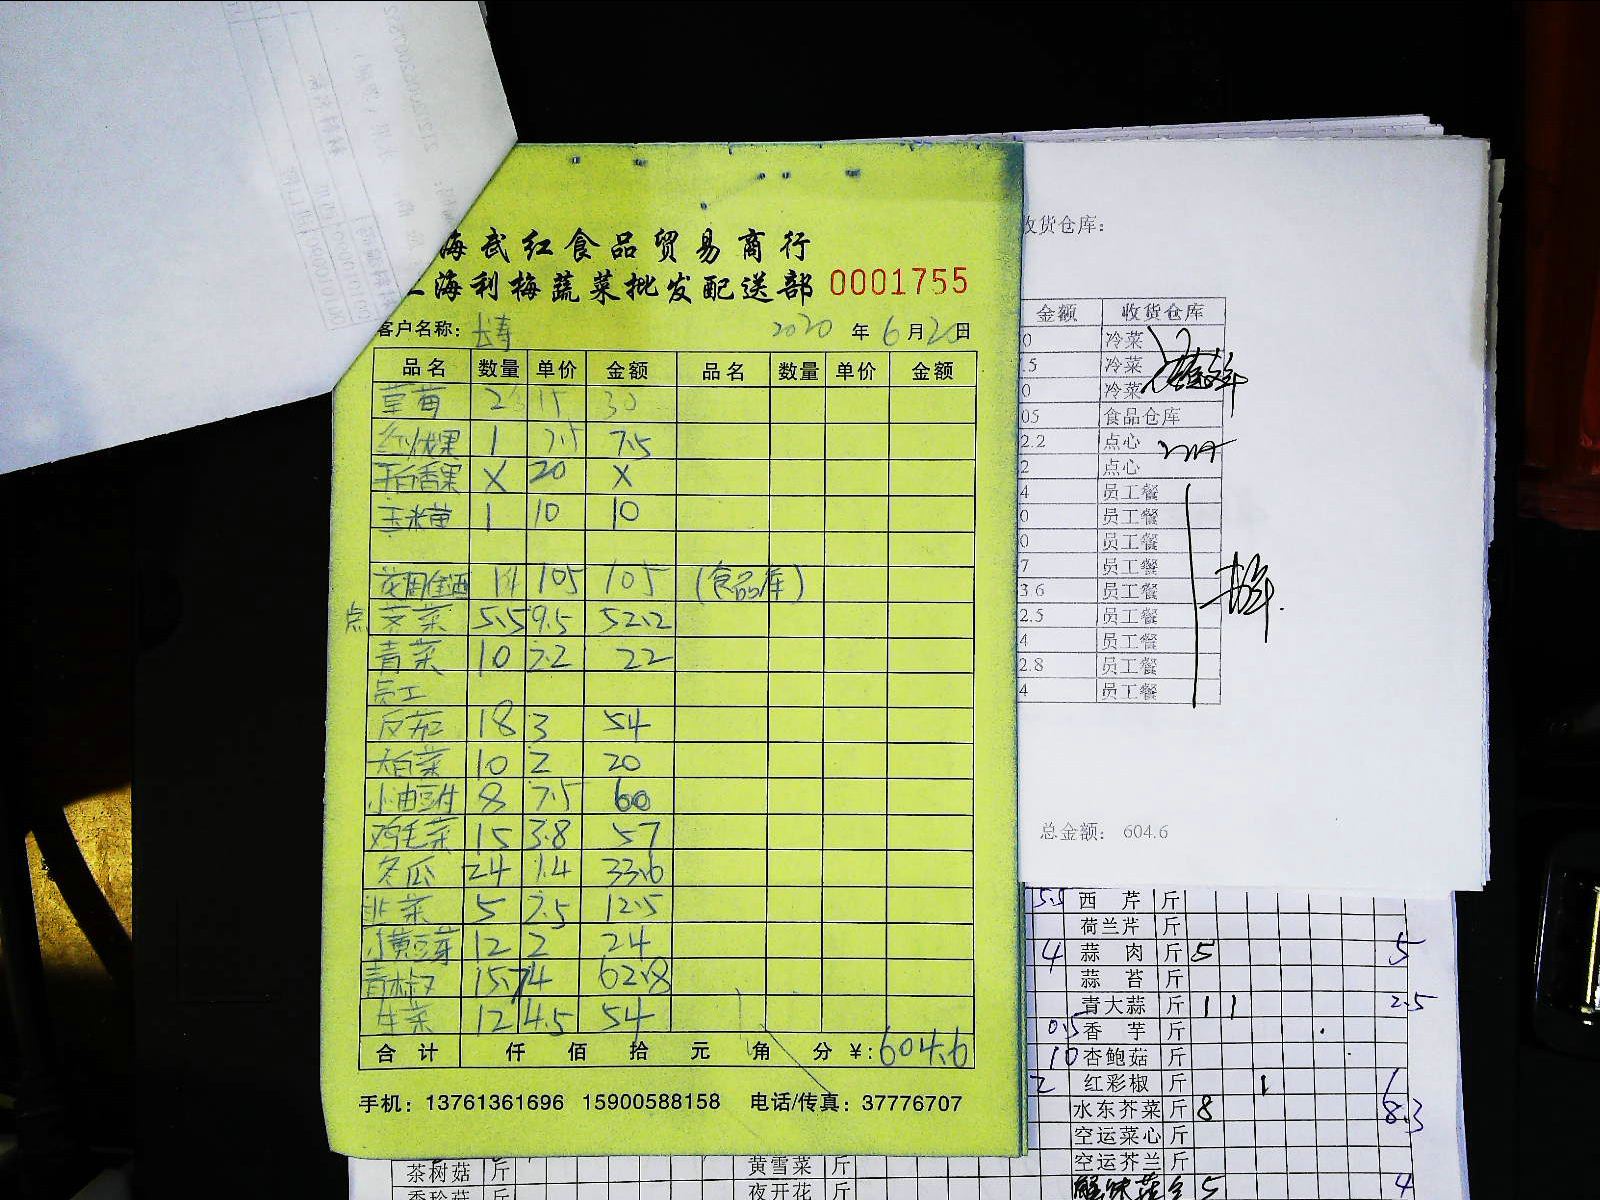 海武红食品贸易商行
上海利梅蔬菜批发配送部 0001755
客户名称: 长寿 2020 年 6 月 20 日
品名 数量 单价 金额 品名 数量 单价 金额
草莓 2 15 30
1 7.5 7.5
百香果 X 20 X
玉米苗 1 10 10
105 105 (食品库)
点 芡菜 5.5 9.5 52.2
青菜 10 2.2 22
员工
反茄 18 3 54
大白菜 10 2 20
小由豆付 8 7.5 60
鸡毛菜 15 3.8 57
冬瓜 24 1.4 33.6
韭菜 5 2.5 12.5
小黄豆芽 12 2 24
青椒 15.7 4 62.8
生菜 12 4.5 54
合计 仟 佰 拾 元 角 分 ¥: 604.6
手机: 13761361696 15900588158 电话/传真: 37776707
收货仓库:
金额 收货仓库
0 冷菜
.5 冷菜
0 冷菜
05 食品仓库
2.2 点心
2 点心
4 员工餐
0 员工餐
0 员工餐
7 员工餐
3.6 员工餐
2.5 员工餐
4 员工餐
2.8 员工餐
4 员工餐
总金额: 604.6
5.5 西芹 斤
荷兰芹 斤
4 蒜肉 斤 5 5
蒜苔 斤
青大蒜 斤 1 1 2.5
0.5 香芋 斤
10 杏鲍菇 斤
2 红彩椒 斤 1 1
水东芥菜 斤 8 8.3
空运菜心 斤
空运芥兰 斤
5 4
茶树菇 斤 黄雪菜 斤
夜开花 斤